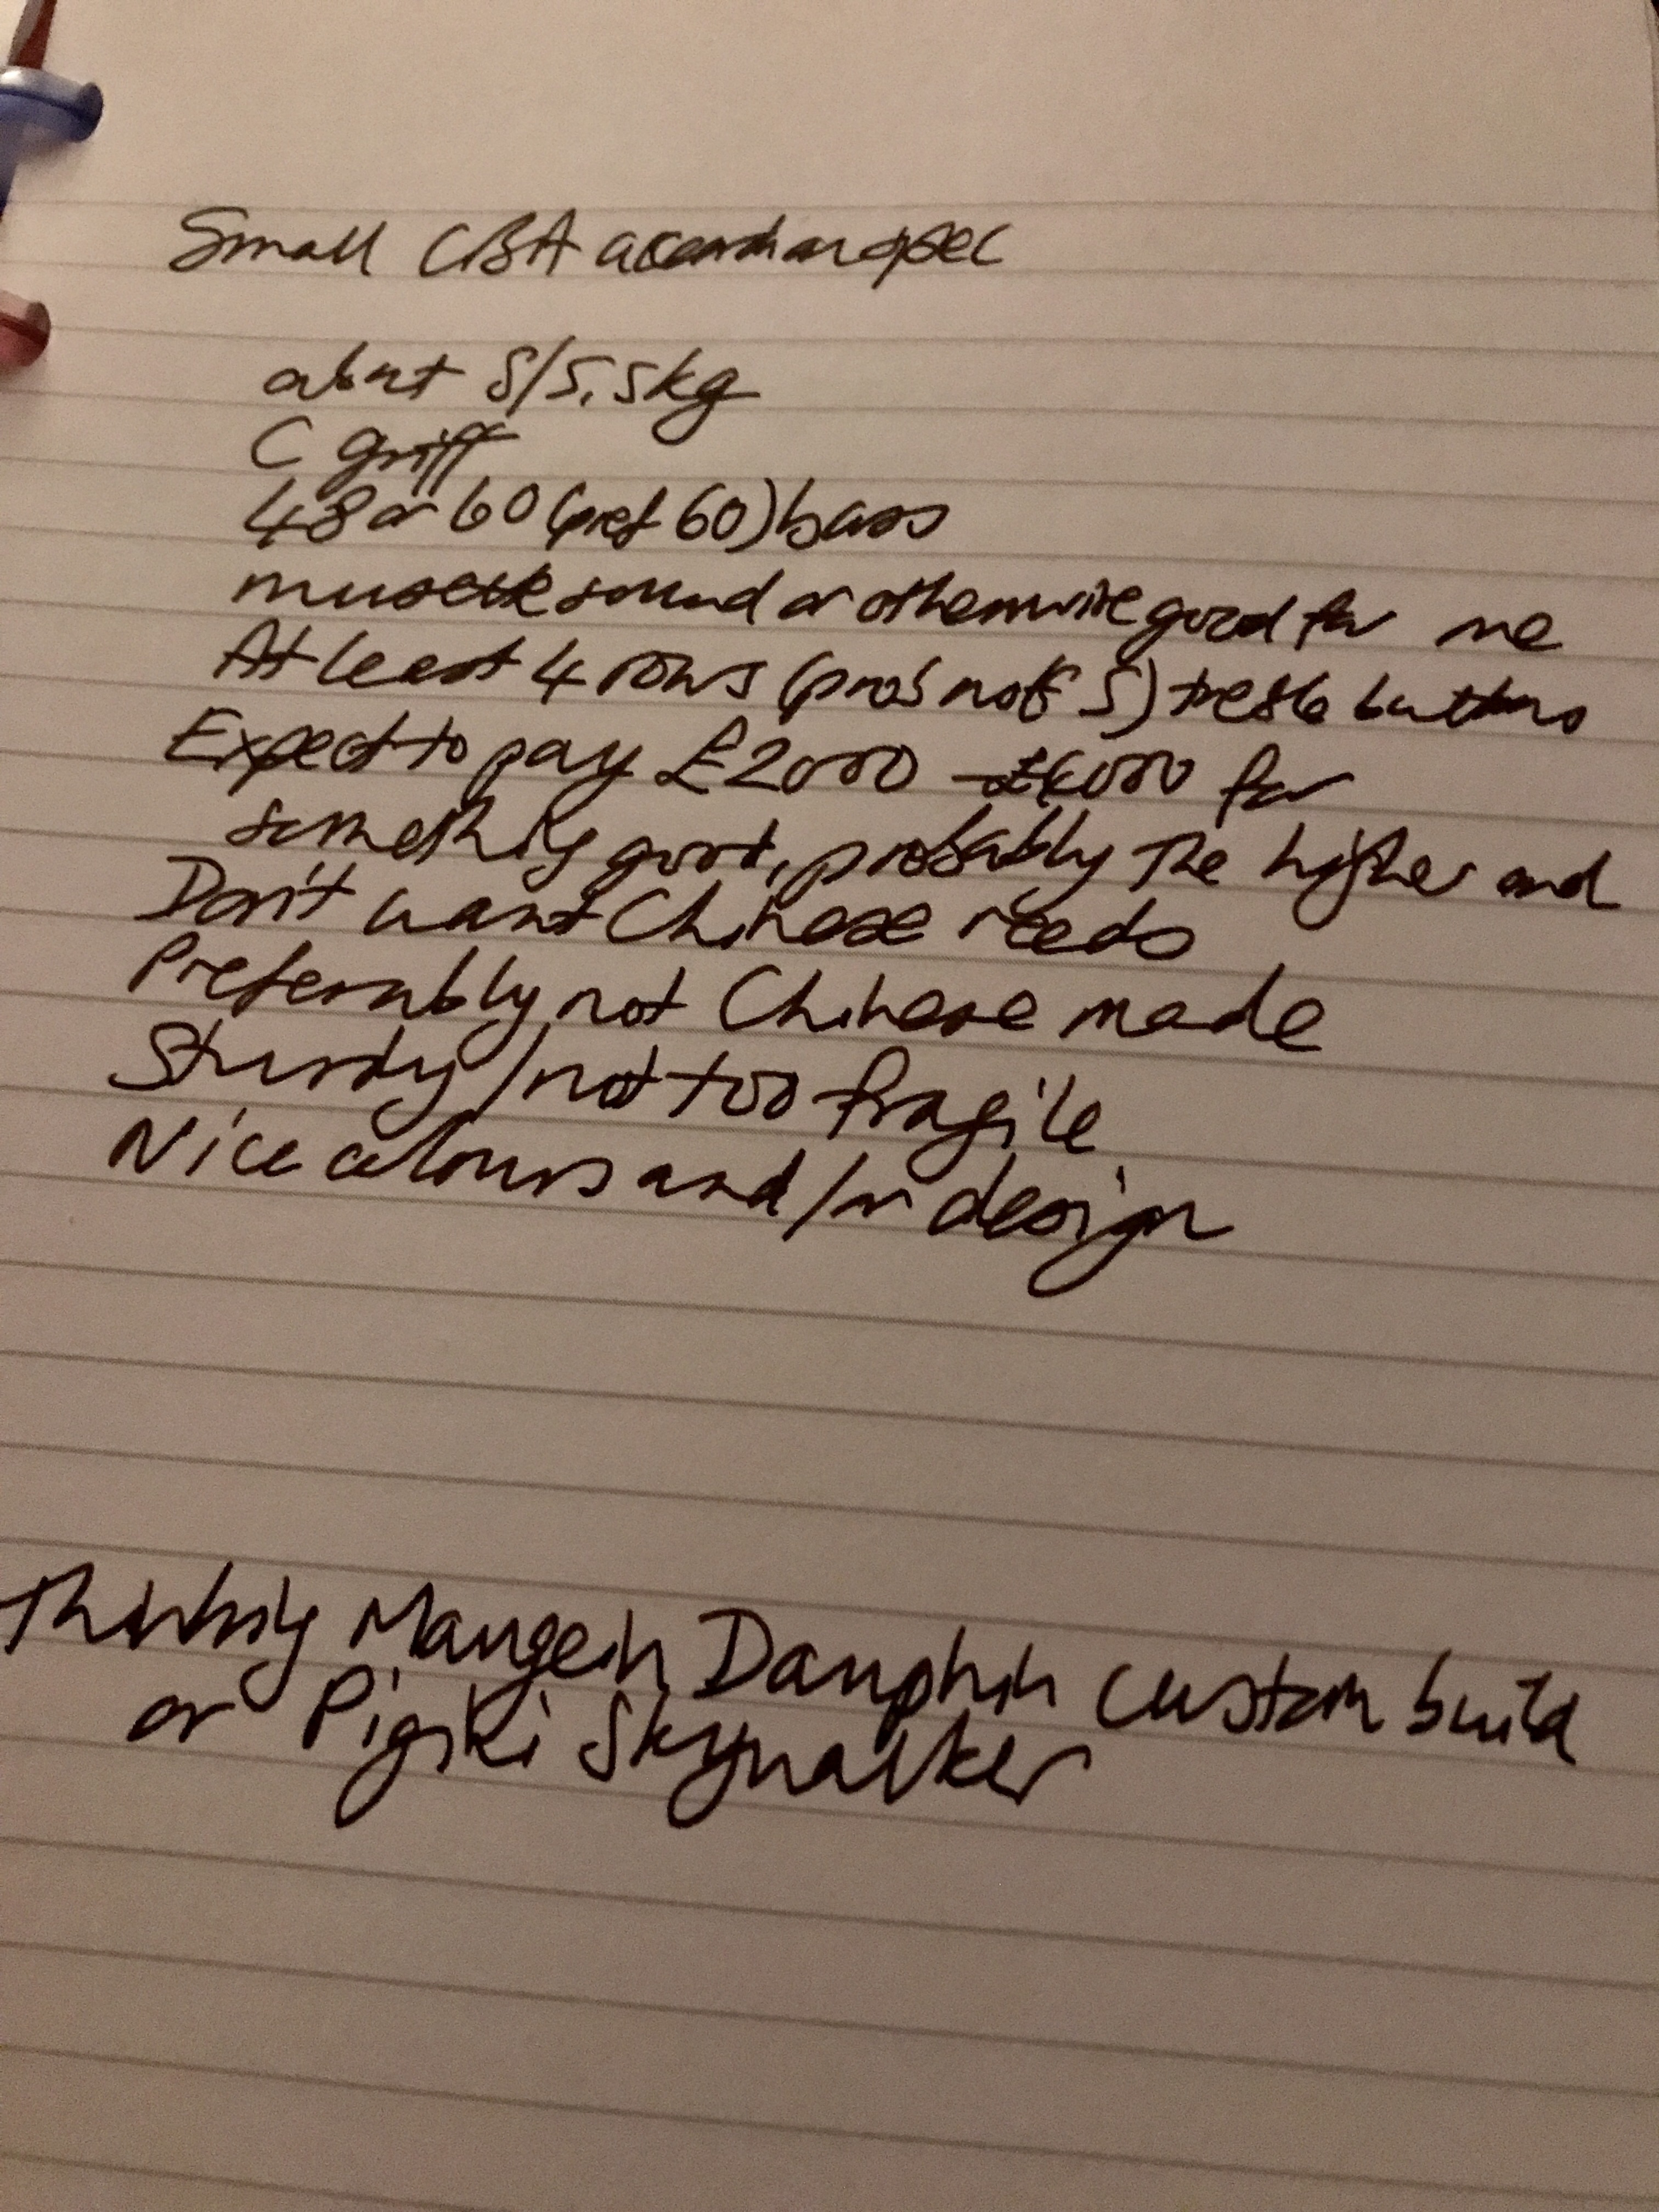 Small CBA accordion spec
about 5/5.5kg
C griff
48 or 60 (pref 60) bass
musette sound or otherwise good for me
At least 4 rows (prob not 5) treble buttons
Expect to pay £2000 - £6000 for
something good, probably the higher end
Don't want Chinese reeds
Preferably not Chinese made
Sturdy/not too fragile
Nice colours and/or design
Thinking Maugein Dauphin custom build
or Pigini Skywalker